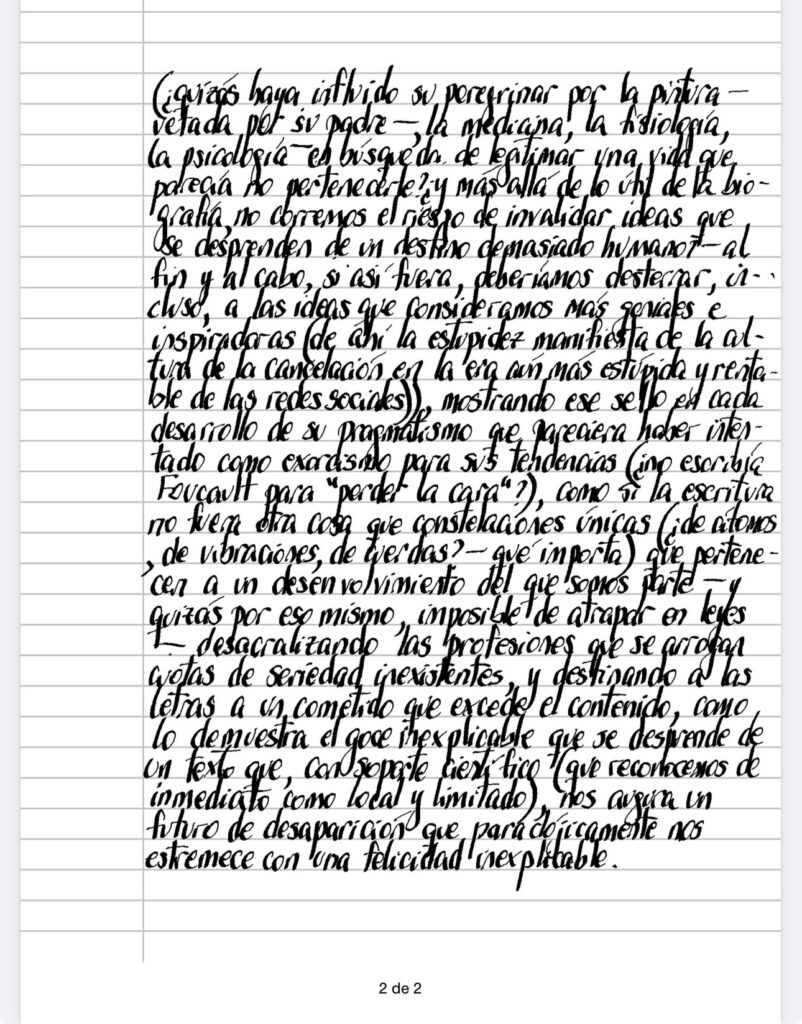 (¿quizás haya influido su peregrinar por la pintura —
vetada por su padre —, la medicina, la fisiología,
la psicología — en búsqueda de legitimar una vida que
parecía no pertenecerle? ¿y más allá de lo útil de la bio-
grafía, no corremos el riesgo de invalidar ideas que
se desprenden de un destino demasiado humano? — al
fin y al cabo, si así fuera, deberíamos desterrar, in-
cluso, a las ideas que consideramos más geniales e
inspiradoras (de ahí la estupidez manifiesta de la cul-
tura de la cancelación en la era aún más estúpida y renta-
ble de las redes sociales)), mostrando ese sello en cada
desarrollo de su pragmatismo que pareciera haber inten-
tado como exorcismo para sus tendencias (¿no escribía
Foucault para "perder la cara"?), como si la escritura
no fuera otra cosa que constelaciones únicas (¿de átomos
, de vibraciones, de cuerdas? — qué importa) que pertene-
cen a un desenvolvimiento del que somos parte — y
quizás por eso mismo, imposible de atrapar en leyes
— desacralizando las profesiones que se arrogan
cuotas de seriedad inexistentes, y destinando a las
letras a un cometido que excede el contenido, como
lo demuestra el goce inexplicable que se desprende de
un texto que, con soporte científico (que reconocemos de
inmediato como local y limitado), nos augura un
futuro de desaparición que paradójicamente nos
estremece con una felicidad inexplicable.
2 de 2